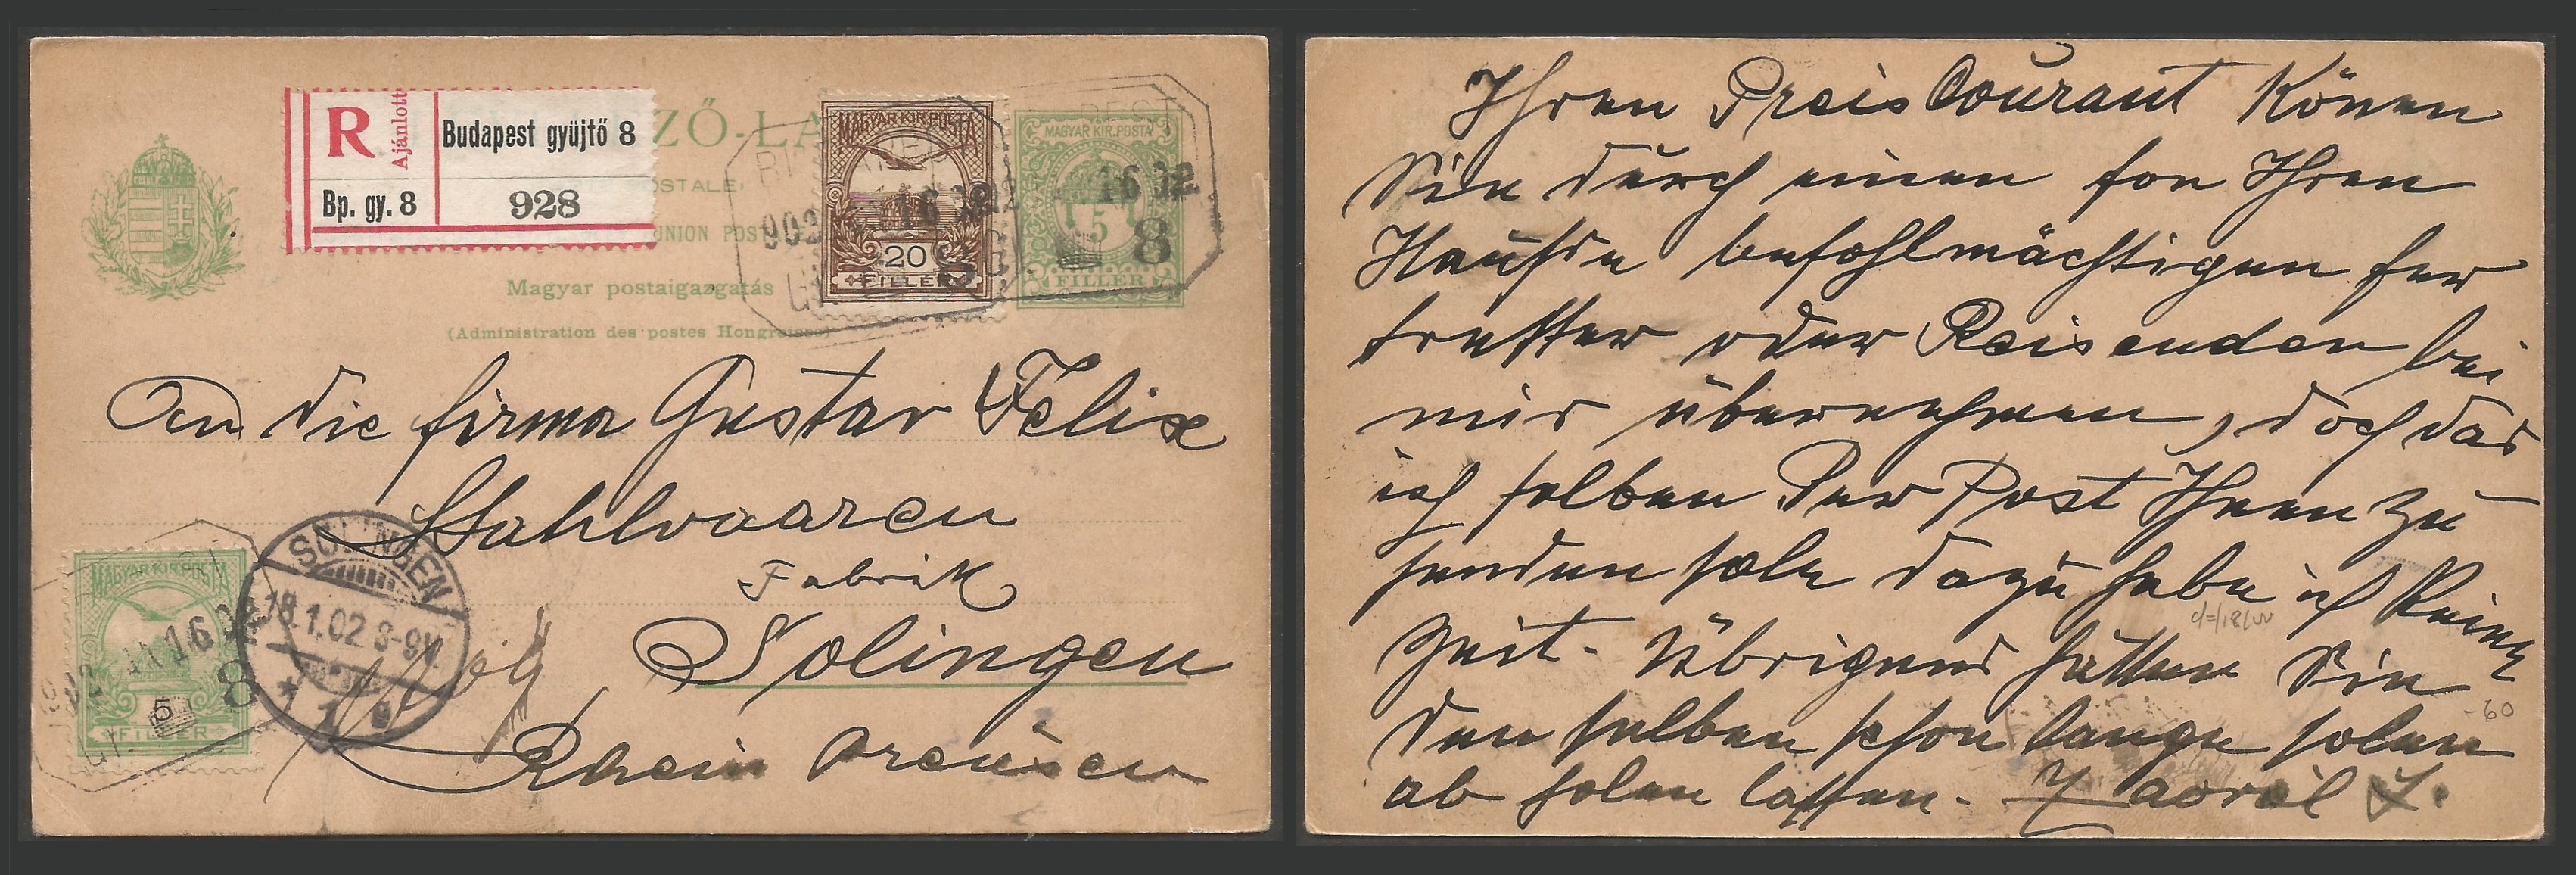 R
Ajánlott
Budapest gyüjtő 8
Bp. gy. 8
928
ZŐ-LA
POSTALE,
UNION POST
Magyar postaigazgatás
(Administration des postes Hongroises)
MAGYAR KIR. POSTA
20
FILLER
MAGYAR KIR. POSTA
5
FILLER
902
16
8
An die firma Gustav Felix
Stahlwaaren
Fabrik
Solingen
Rhein Preüsen
MAGYAR KIR. POSTA
5
FILLER
16
8
SOLINGEN
18.1.02 8-9V.
* 1 g
Ihren Preis Courant Könen
Sie dürch einen fon Ihren
Haüse befohlmächtigen fer
tretter oder Reisenden bei
mir übernehmen, doch das
ich selben Per Post Ihnen zü
senden sole dazü habe ich Keine
Zeit. Übrigens hätten Sie
den selben schon lange solen
ab holen lassen.
-60